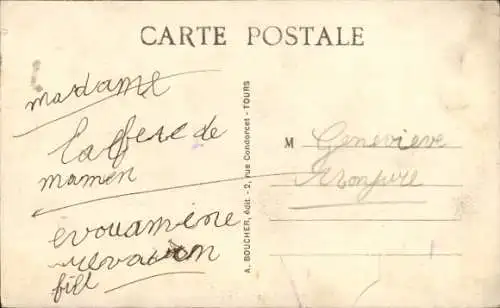 CARTE POSTALE
madame
la fere de
mamen
evouamine
fill
A. BOUCHER, édit - 2, rue Condorcet - TOURS
M Genevieve